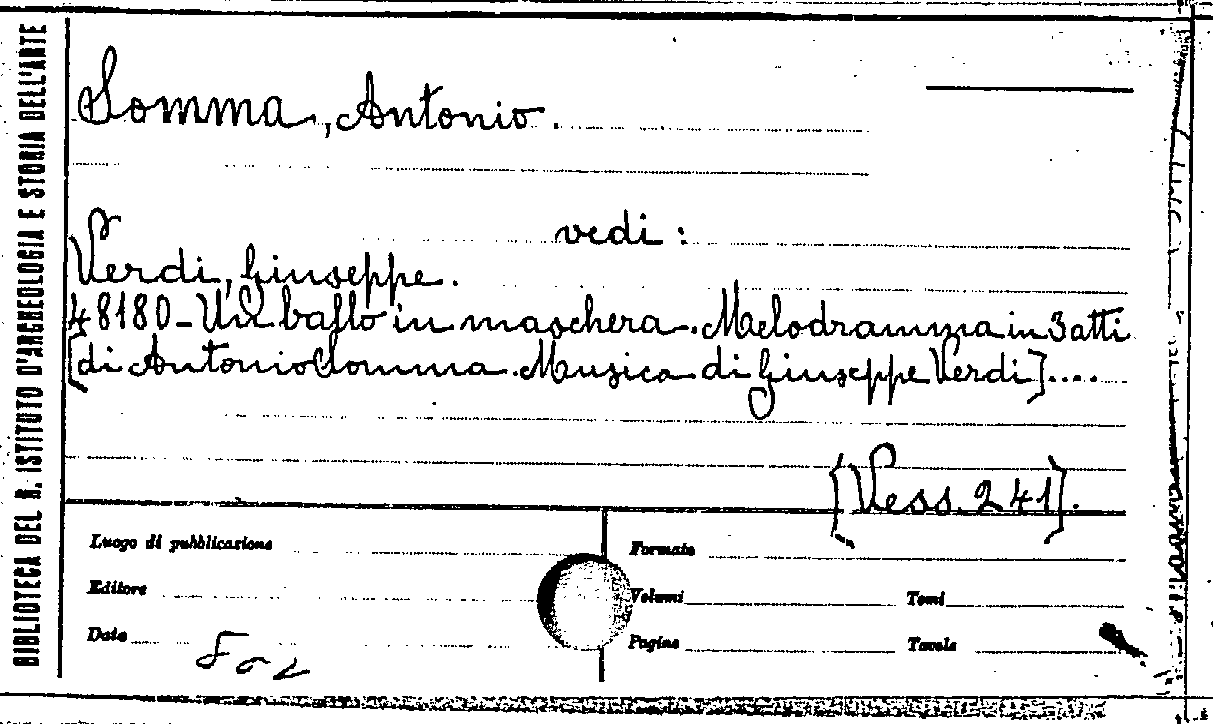 BIBLIOTECA DEL R. ISTITUTO D'ARCHEOLOGIA E STORIA DELL'ARTE
Somma, Antonio.
vedi :
Verdi, Giuseppe.
48180 - Un ballo in maschera. Melodramma in 3 atti
[di Antonio Somma. Musica di Giuseppe Verdi]....
[Vess. 241].
Luogo di pubblicazione
Formato
Editore
Volumi
Tomi
Data
Pagine
Tavole